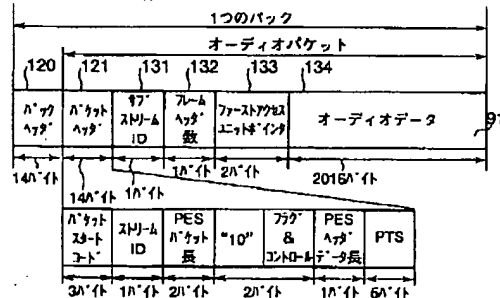 1つのパック
オーディオパケット
120
121
131
132
133
134
パック
ヘッダ
パケット
ヘッダ
サブ
ストリーム
ID
フレーム
ヘッダ
数
ファーストアクセス
ユニットポインタ
オーディオデータ
14バイト
14バイト
1バイト
1バイト
2バイト
2016バイト
パケット
スタート
コード
ストリーム
ID
PES
パケット
長
"10"
フラグ
&
コントロール
PES
ヘッダ
データ長
PTS
3バイト
1バイト
2バイト
2バイト
1バイト
5バイト